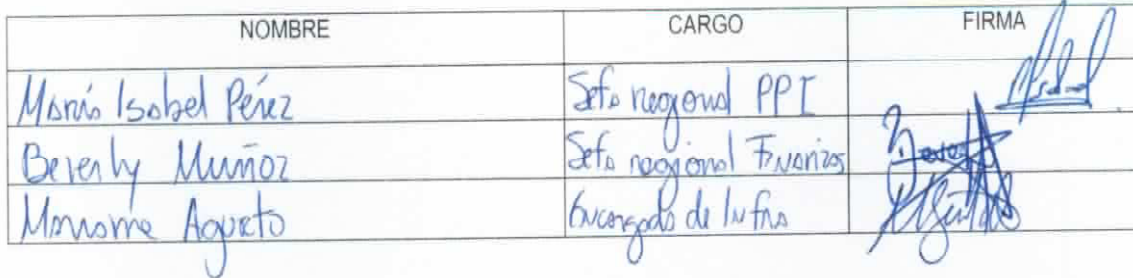 NOMBRE CARGO FIRMA
María Isabel Pérez Jefa regional PPI
Beverly Muñoz Jefa regional Finanzas
Encargada de Infra